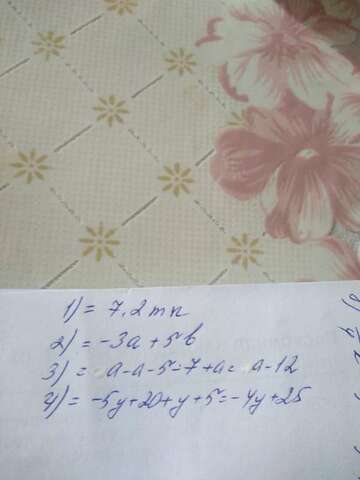 1) = 7,2mn
2) = -3a + 5b
3) = a-a-5-7+a = a-12
4) = -5y+20+y+5 = -4y+25